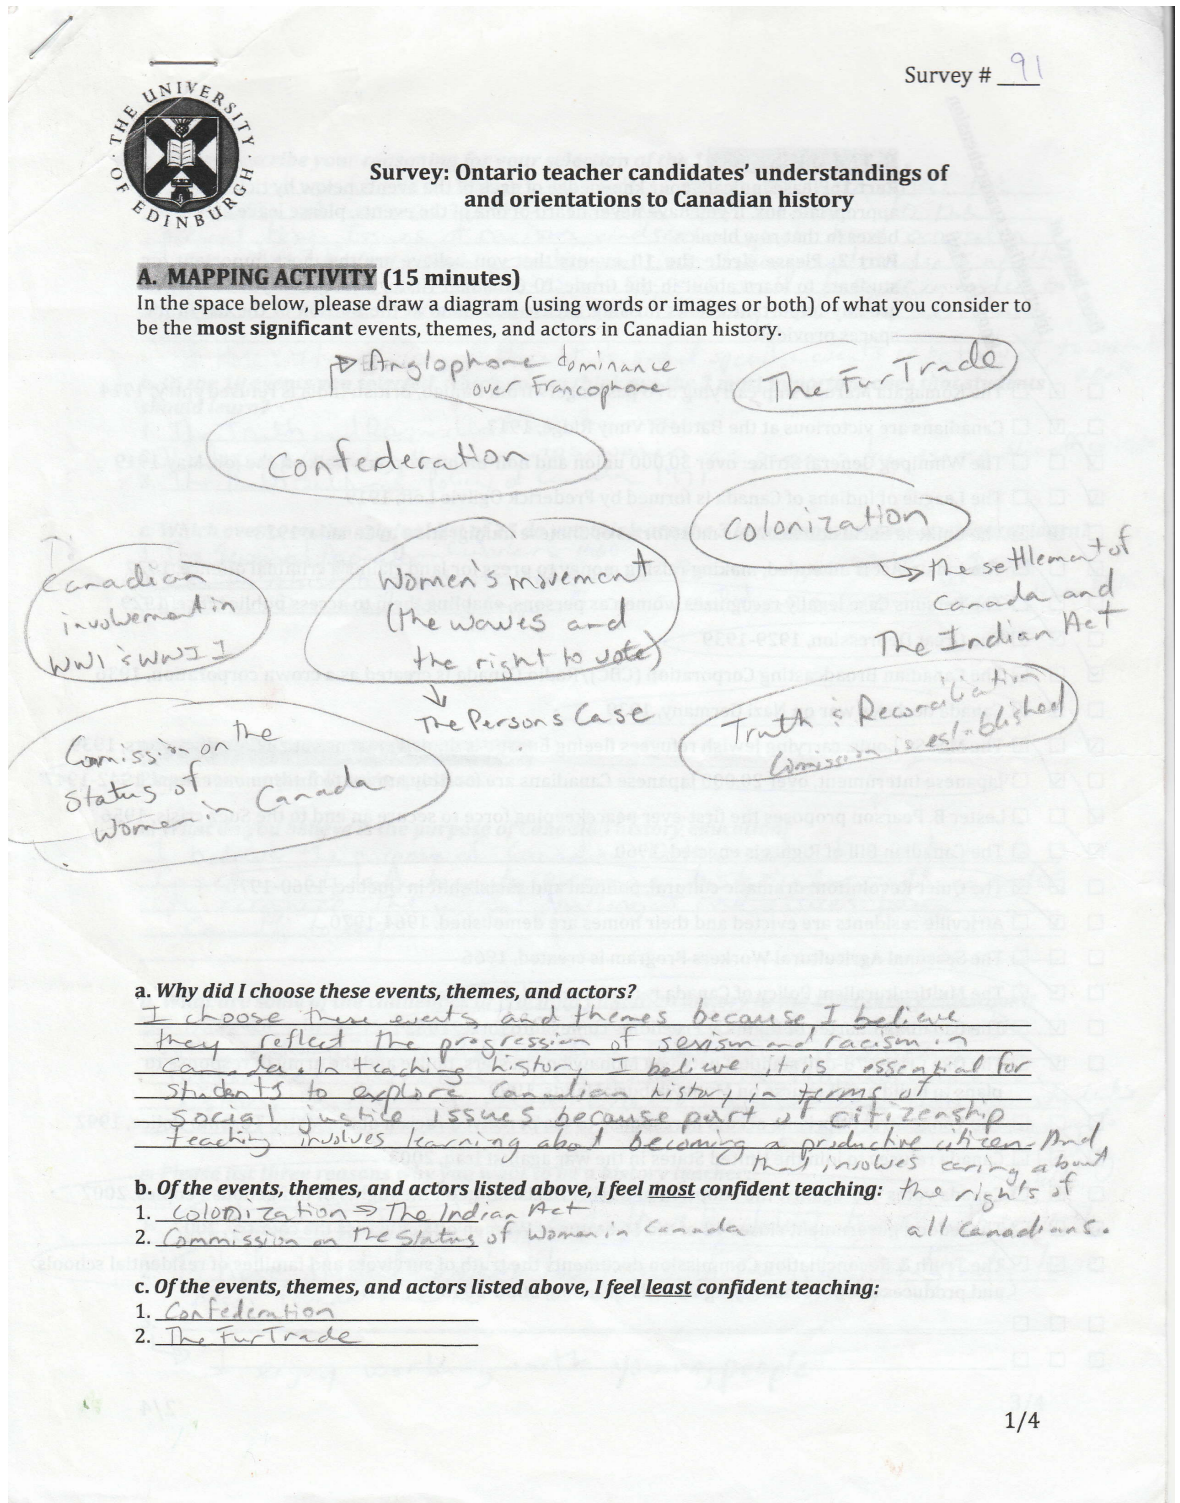 Survey # 91
THE UNIVERSITY OF EDINBURGH
Survey: Ontario teacher candidates' understandings of
and orientations to Canadian history
A. MAPPING ACTIVITY (15 minutes)
In the space below, please draw a diagram (using words or images or both) of what you consider to
be the most significant events, themes, and actors in Canadian history.
Anglophone dominance
over Francophone
The Fur Trade
Confederation
Colonization
the settlement of
Canada and
The Indian Act
Canadian
involvement in
WWI & WWII
Women's movement
(the waves and
the right to vote)
The Persons Case
Truth & Reconciliation
Comission is established
Commission on the
Status of
Women in Canada
a. Why did I choose these events, themes, and actors?
I choose these events and themes because, I believe
they reflect the progression of sexism and racism in
Canada. In teaching history, I believe it is essential for
students to explore Canadian history in terms of
social justice issues because part of citizenship
teaching involves learning about becoming a productive citizen. And
that involves caring about
the rights of
all Canadians.
b. Of the events, themes, and actors listed above, I feel most confident teaching:
1. Colonization ⇒ The Indian Act
2. Commission on the Status of Women in Canada
c. Of the events, themes, and actors listed above, I feel least confident teaching:
1. Confederation
2. The Fur Trade
1/4